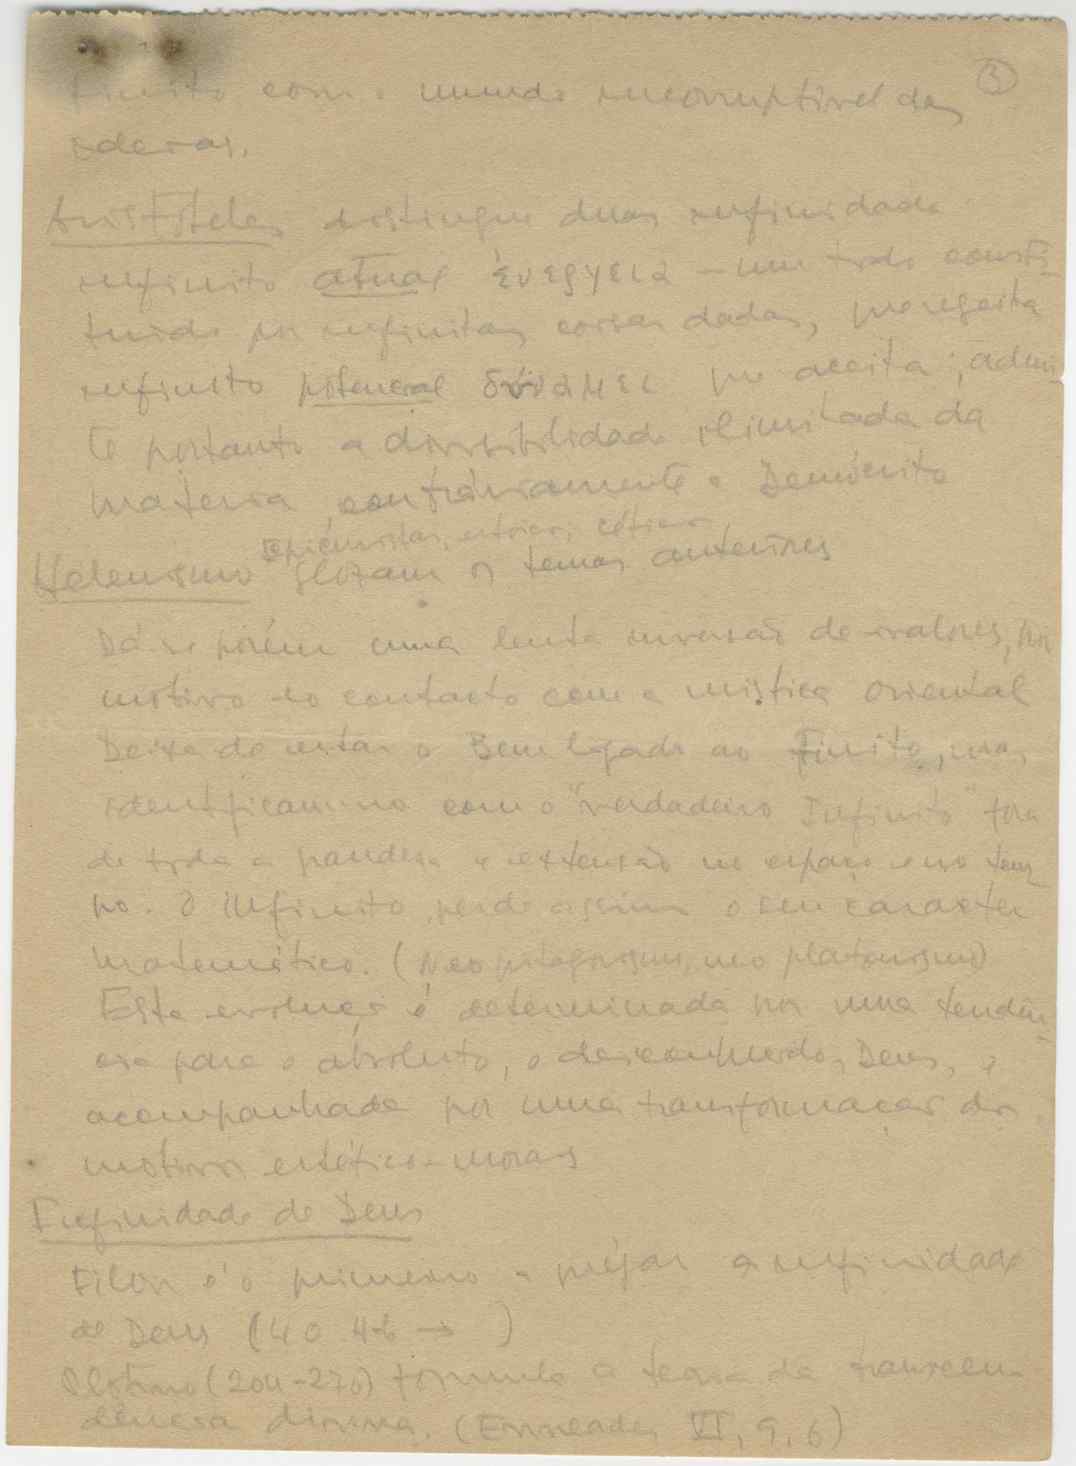 3
finito com o mundo incorruptível das
ideias.
Aristóteles distingue duas infinidades
infinito atual ἐνεργεια – um todo consti-
tuido por infinitas coisas dadas, que rejeita
infinito potencial δύναμει que aceita; admi-
te portanto a divisibilidade ilimitada da
materia contráriamente a Demócrito
Epicuristas, estoicos, céticos
Helenismo glozam os temas anteriores
Dá-se porém uma lenta inversão de valores, por
motivo do contacto com a mística oriental
Deixa de estar o Bem ligado ao finito, mas
identificam-no com o "verdadeiro Infinito" fora
de toda a grandeza e extensão no espaço e no tem-
po. O Infinito perde assim o seu carácter
matemático. (Neo pitagorismo, neo platonismo)
Esta evolução é determinada por uma tendên-
cia para o absoluto, o desconhecido, Deus, e
acompanhada por uma transformação dos
motivos estético-morais
Infinidade de Deus
Filon é o primeiro a pregar a infinidade
de Deus (40 →)
Plotino (204-270) formula a teoria da transcen-
dência divina. (Enneades VI, 9, 6)